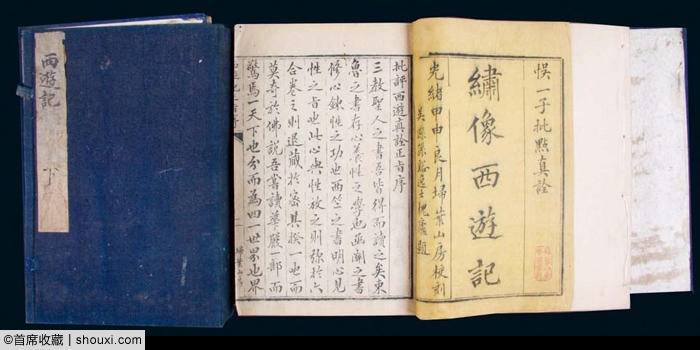 西遊記
下
悞一子批點真詮
繡像西遊記
光緒甲申良月埽葉山房校刻
吳縣孫谿逸士槐廬題
批評西遊真詮正旨序
三教聖人之書吾皆得而讀之矣東
魯之書存心養性之學也函關之書
修心鍊性之功也西竺之書明心見
性之旨也此心與性放之則弥於六
合卷之則退藏於密其揆一也而
莫奇於佛說吾嘗讀華嚴一部而
驚焉一天下也分而為四一世界也界
埽葉山房
©首席收藏 | shouxi.com